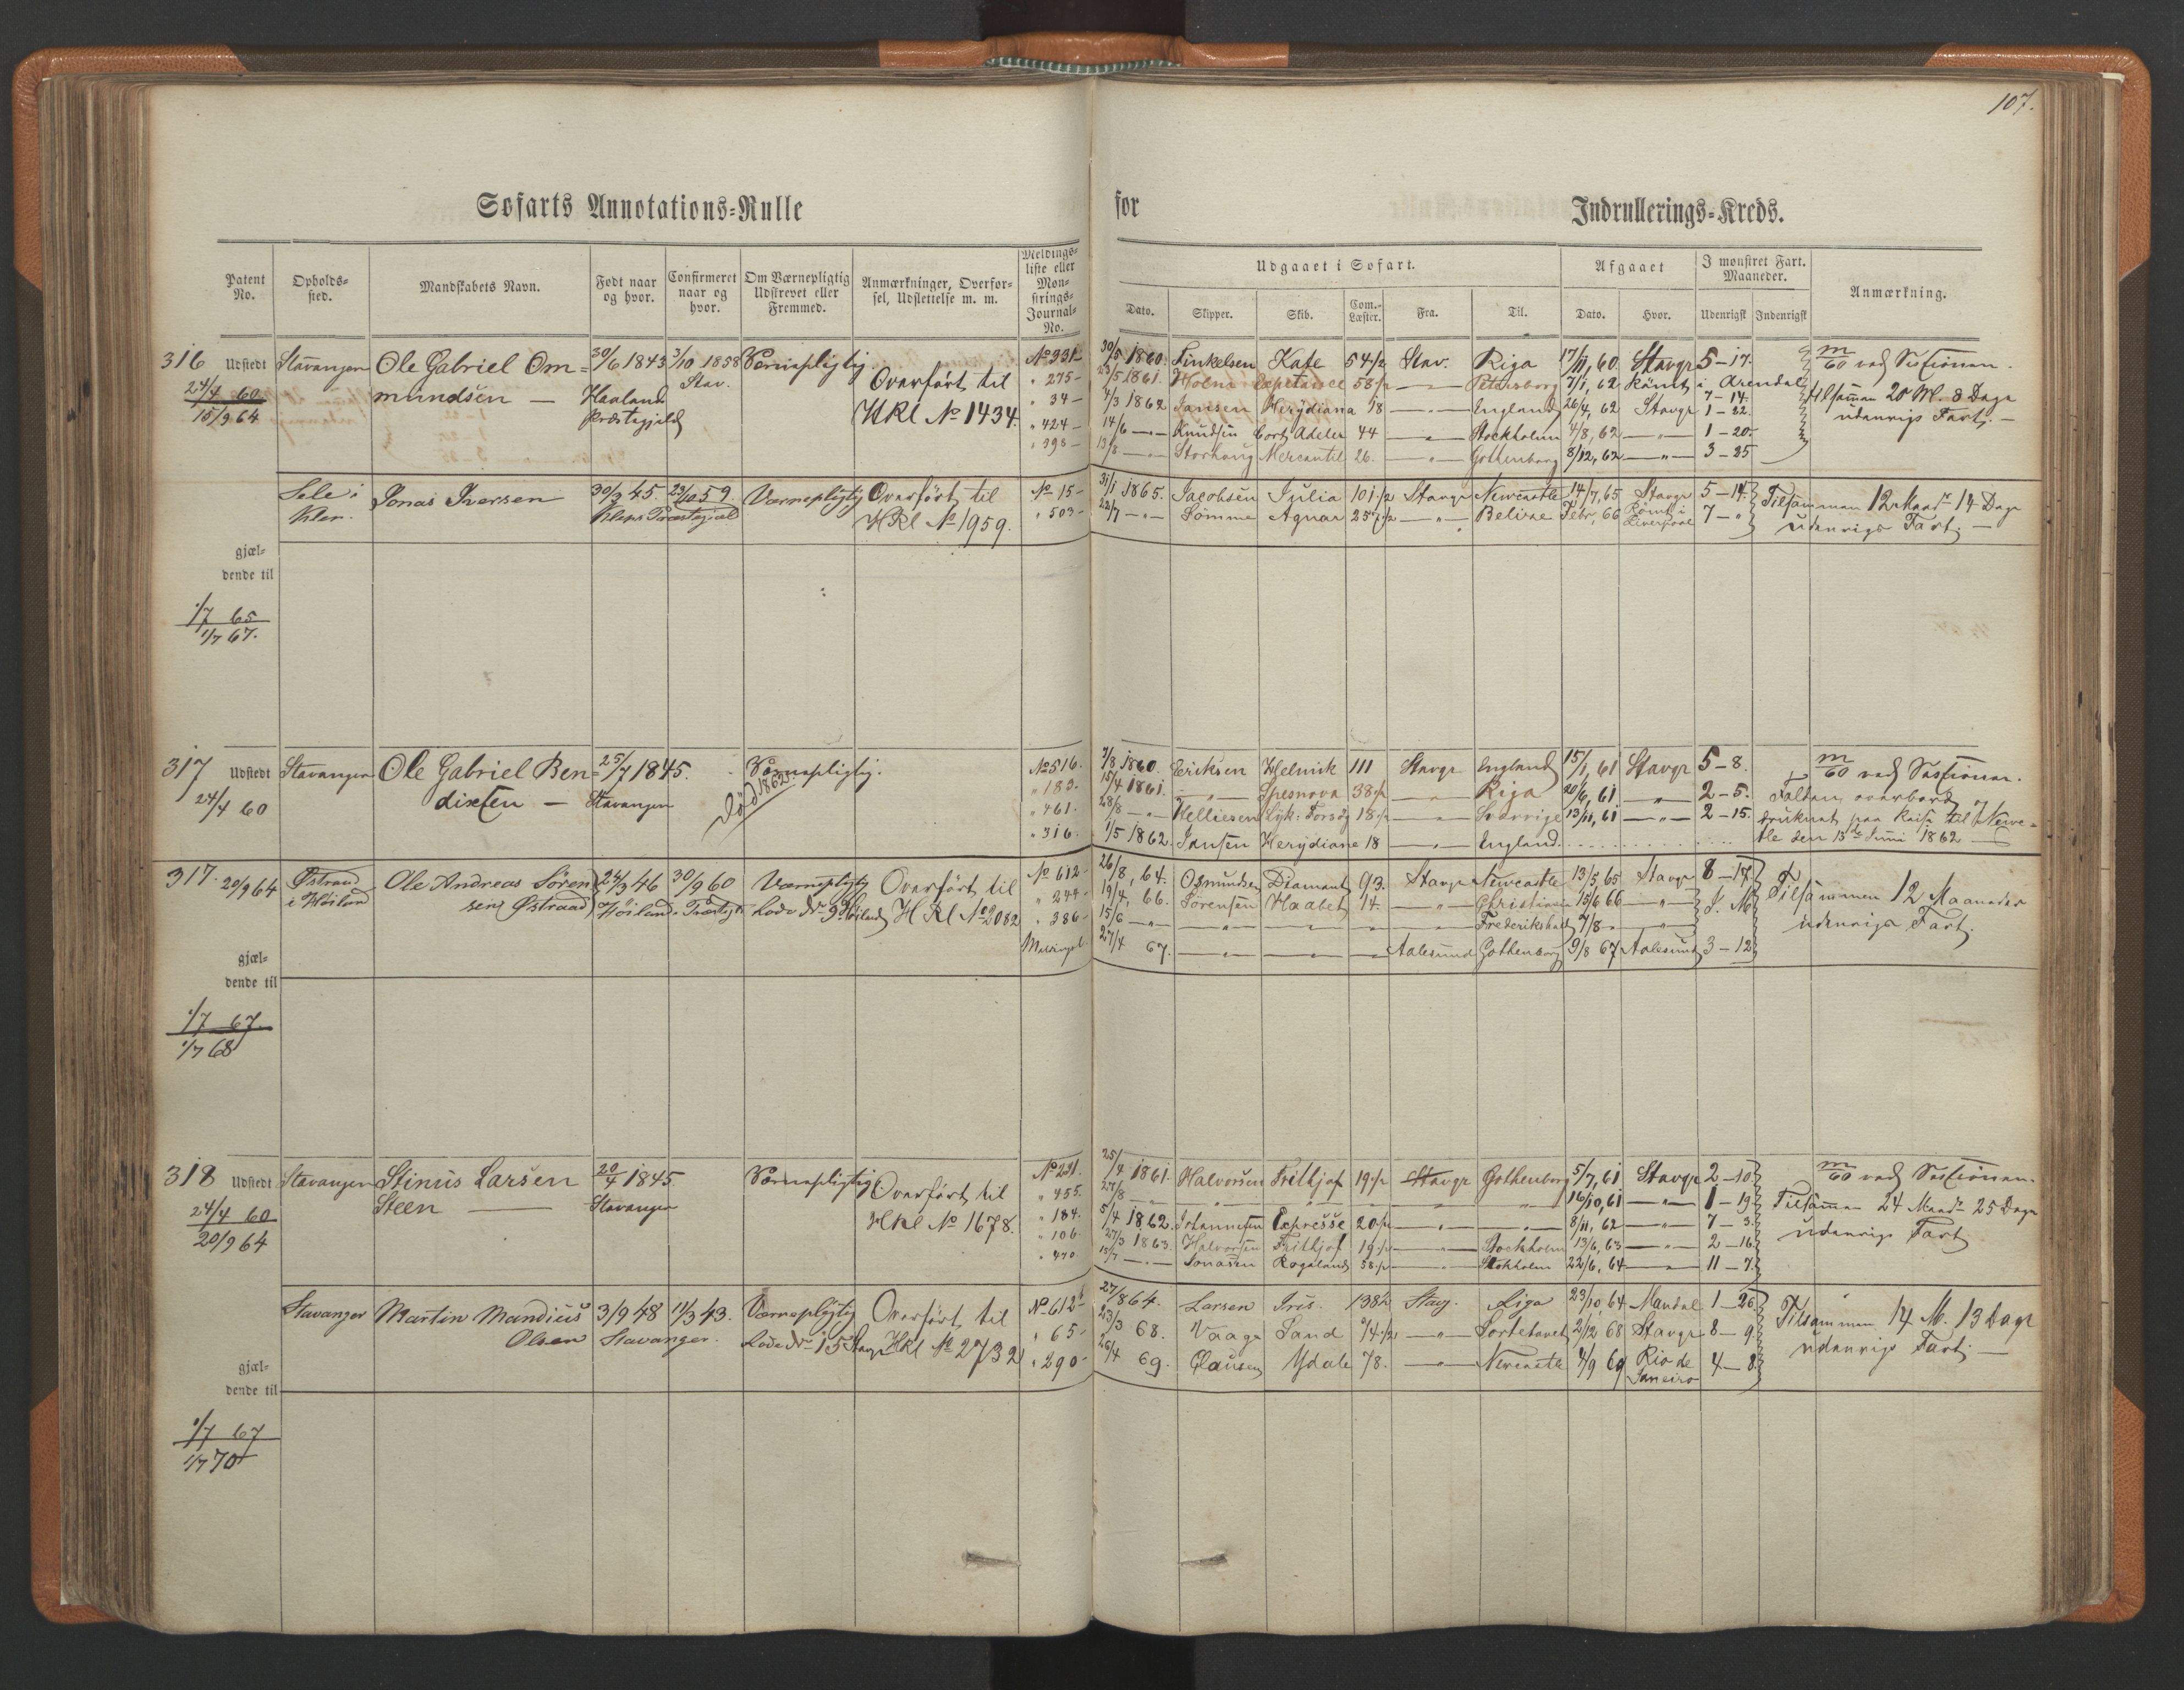 107.
Søfarts Annotations-Rulle for Indrullerings-Kreds.
Patent No. Opholds-sted. Mandskabets Navn. Født naar og hvor. Confirmeret naar og hvor. Om Værnepligtig Udskrevet eller Fremmed. Anmærkninger, Overførsel, Udslettelse m. m. Meldings-liste eller Mønstrings-Journal-No.
Udgaaet i Søfart. Afgaaet I mønstret Fart. Maaneder. Anmærkning.
Dato. Skipper. Skib. Com.-Læster. Fra. Til. Dato. Hvor. Udenrigst Indenrigst
316 Udstedt Stavanger Ole Gabriel Om= 30/6 1843 3/10 1858 Værnepligtig No 231 30/5 1860. Finkelsen Kate 54 1/2 Stav. Riga 17/11, 60 Stavgr 5-17. m/60 ved Sessionen.
24/4 60 mundsen — Haaland Stav. Overført til " 275 23/5 1861. Holm 58 1/2 —"— Petersborg 7/1, 62 Rømt i Arendal 7-14. tilsamen 20 M. 8 Dage
15/9 64 Præstegjeld HRl No 1434. " 34 4/3 1862 Jansen Herydiana 18 —"— England 26/4, 62 Stavgr 1-22. udenrigs Fart. —
" 424 14/6 —"— Knudsen Cort Adeler 44 —"— Stockholm 4/8, 62 —"— 1-20.
" 598 13/8 —"— Storhaug Mercantil 26. —"— Gottenborg 8/12, 62 —"— 3-25
Sele i Jonas Iversen 30/3 45. 23/10 59. Værnepligtig Overført til No 15 31/1 1865. Jacobsen Julia 101 1/2 Stavgr Newcastle 14/7, 65 Stavgr 5-14. Tilsammen 12 Maad 14 Dage
Klep. Kleps Præstegjæld HRl No 1959. " 503 22/7 —"— Sømme Agnar 257 1/2 —"— Belize Febr, 66 Rømt i Liverpool 7-" udenrigs Fart. —
gjæl-
dende til
1/7 65
1/7 67.
317 Udstedt Stavanger Ole Gabriel Ben= 25/7 1845. Værnepligtig. No 516. 7/8 1860. Eriksen Helmik 111 Stavgr England 15/1, 61 Stavgr 5-8. m/60 ved Sessionen.
24/4 60 dixsen — Stavanger Død 1862 " 183. 15/4 1861. —"— Spesnova 38 1/2 —"— Riga 20/6, 61 —"— 2-5. Falden overbord og
" 461. 28/8 —"— Helliesen Lyk: Forsøg 18 1/2 —"— Sverrige 13/11, 61 —"— 2-15. druknet paa Reise til Newca=
" 316. 1/5 1862. Jansen Herydiane 18 —"— England. stle den 13de Juni 1862 —
317. 20/9 64 Østraad Ole Andreas Søren 24/3 46 30/9 60 Værnepligtig Overført til No 612 26/8, 64. Osmundsen Diamant 93. Stavgr Newcastle 13/5, 65 Stavgr 8-17. Tilsammen 12 Maaneder
i Høiland sen Østraad Høiland Præstegj. Lodd No 9 Høiland HRl No 2082 " 244 19/4, 66. Sørensen Haabet 14. —"— Christiania 15/6 66 —"— J. M. udenrigs Fart.
" 386 15/6 —"— —"— —"— Frederikshald 7/8 —"—
27/4 67. —"— —"— Aalesund Gothenborg 9/8 67 Aalesund 3-12.
gjæl-
dende til
1/7 67.
1/7 68
318 Udstedt Stavanger Stinus Larsen 20/4 1845 Værnepligtig No 231. 25/4 1861. Halvorsen Frithjof 19 1/2 Stavgr Gothenborg 5/7, 61 Stavgr 2-10. m/60 ved Sessionen.
24/4 60 Steen — Stavanger Overført til " 455. 27/8 —"— —"— —"— 16/10, 61 —"— 1-19 Tilsamen 24 Maadr 25 Dage
20/9 64 HRl No 1678. " 184. 5/4 1862. Johannesen Expresse 20 1/2 —"— —"— 8/11, 62 —"— 7-3. udenrigs Fart.
" 106. 27/3 1863. Halvorsen Frithjof 19 1/2 —"— Stockholm 13/6, 63 —"— 2-16.
" 470. 15/7 —"— Jonasen Rogaland 58 1/2 —"— Stokholm 22/6, 64 —"— 11-7.
Stavanger Martin Mandius 3/9 48 11/3 43. Værnepligtig Overført til No 612 27/8 64. Larsen Iris. 138 1/2 Stavg. Riga 23/10, 64 Mandal 1-26 Tilsammen 14 M. 13 Dage
Olsen Stavanger. Lodd No 15 Stavgr HRl No 2732 " 65 23/3 68. Vaage Sand 74 1/2 —"— Sortehavet 2/12 68 Stavgr 8-9. udenrigs Fart. —
" 290 26/4 69. Clausen Ydale 78. —"— Newcastle 4/9 69 Rio de Janeiro 4-8.
gjæl-
dende til
1/7 67
1/7 70